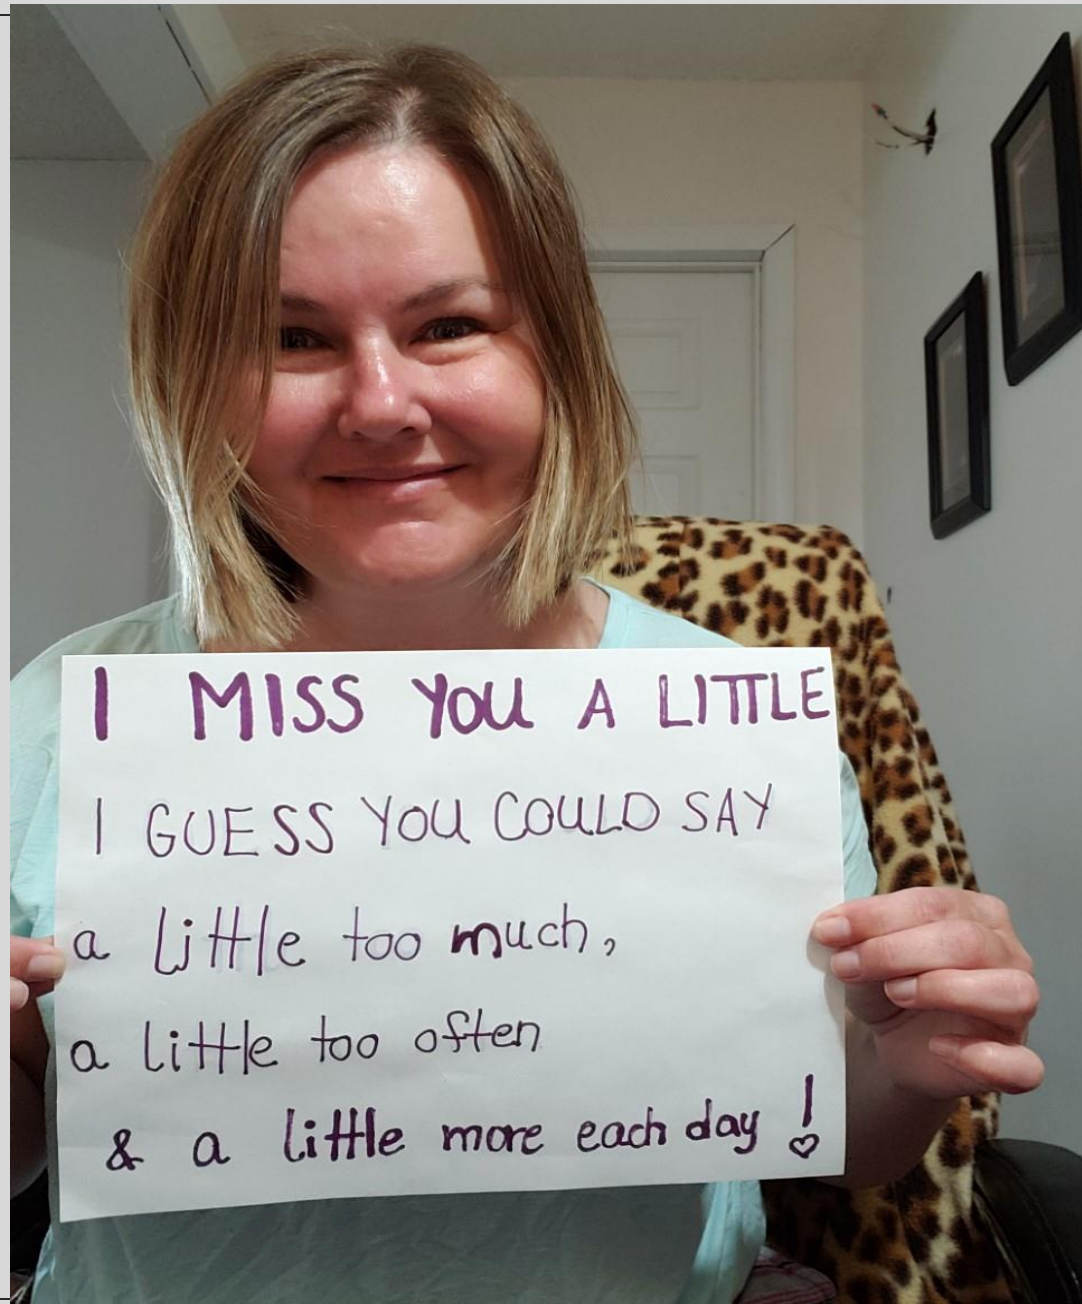 I MISS YOU A LITTLE
I GUESS YOU COULD SAY
a little too much,
a little too often
& a little more each day !